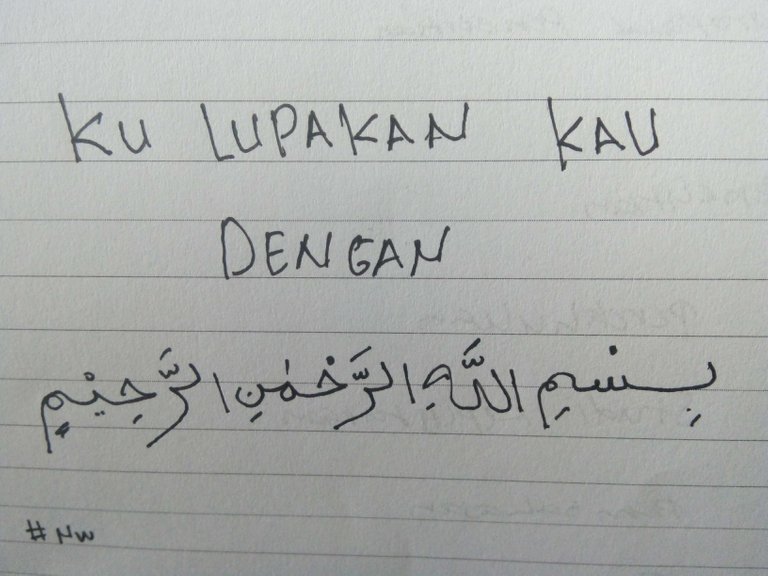 KU LUPAKAN KAU
DENGAN
بِسْمِ اللَّهِ الرَّحْمٰنِ الرَّحِيْمِ
#NW